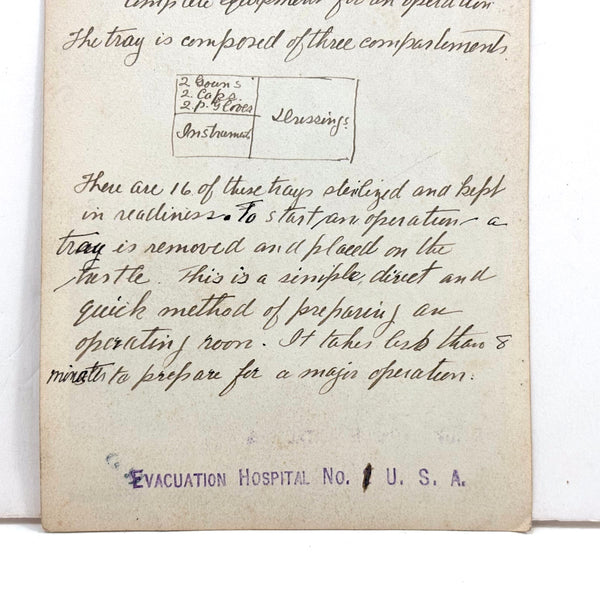 complete equipment for an operation
The tray is composed of three compartements
2 Gowns
2. Caps.
2. P. Gloves
Instrument
Dressings
There are 16 of these trays sterilized and kept
in readiness. To start an operation a
tray is removed and placed on the
tustle. This is a simple, direct and
quick method of preparing an
operating room. It takes less than 8
minutes to prepare for a major operation.
EVACUATION HOSPITAL NO. 1 U. S. A.